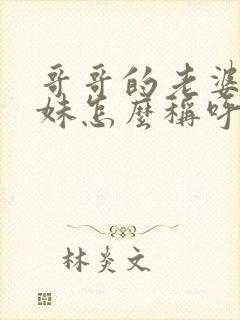 哥哥的老婆
妹怎麼稱呼
林炎文